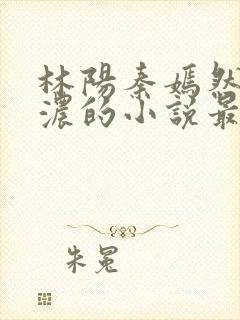 林陽秦嫣然
濃的小說最
朱冕